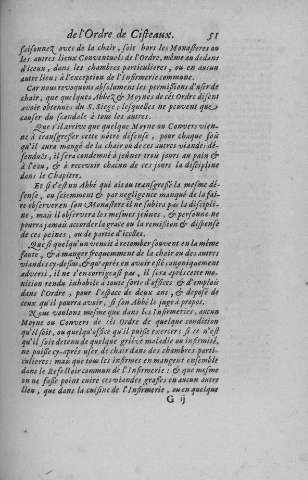 de l'Ordre de Cisteaux. 51
saisonnez avec de la chair, soit hors les Monasteres ou
les autres lieux Conventuels de l'Ordre, même au dedans
d'iceux, dans les chambres particulieres, ou en aucun
autre lieu; à l'exception de l'Infirmerie commune.
Car nous revoquons absolument les permissions d'user de
chair, que quelques Abbez & Moynes de cét Ordre disent
avoir obtenues du S. Siege; lesquelles ne peuvent que
causer du scandale à tous les autres.
Que s'il arrive que quelque Moyne ou Convers vien-
ne à transgresser cette nôtre défense, pour chaque fois
qu'il aura mangé de la chair ou de ces autres viandes dé-
fendües, il sera condamné à jeûner trois jours au pain &
à l'eau, & à recevoir chacun de ces jours la discipline
dans le Chapitre.
Et si c'est un Abbé qui ait ou transgressé la mesme dé-
fense, ou sciemment & par negligence manqué de la fai-
re observer en son Monastere il ne subira pas la discipli-
ne, mais il observera les mesmes jeûnes, & personne ne
pourra jamais accorder la grace ou la remission & dispense
de ces peines, ou de partie d'icelles.
Que si quelqu'un venoit à retomber souvent en la même
faute, & à manger frequemment de la chair ou des autres
viandes cy-dessus, & qu'après en avoir esté canoniquement
adverti, il ne s'en corrigeast pas, il sera après cette mo-
nition rendu inhabile à toute sorte d'offices & d'emplois
dans l'Ordre, pour l'espace de deux ans, & déposé de
ceux qu'il pourra avoir, si son Abbé le juge à propos.
Nous voulons mesme que dans les Infirmeries, aucun
Moyne ou Convers de cét Ordre de quelque condition
qu'il soit, ou quelque office qu'il puisse exercer; si ce n'est
qu'il soit detenu de quelque griéve maladie ou infirmité,
ne puisse cy-après user de chair dans des chambres parti-
culieres: mais que tous les infirmes en mangent ensemble
dans le Refectoir commun de l'Infirmerie: & que mesme
on ne fasse point cuire ces viandes grasses en aucun autre
lieu, que dans la cuisine de l'Infirmerie, ou en quelque
G ij